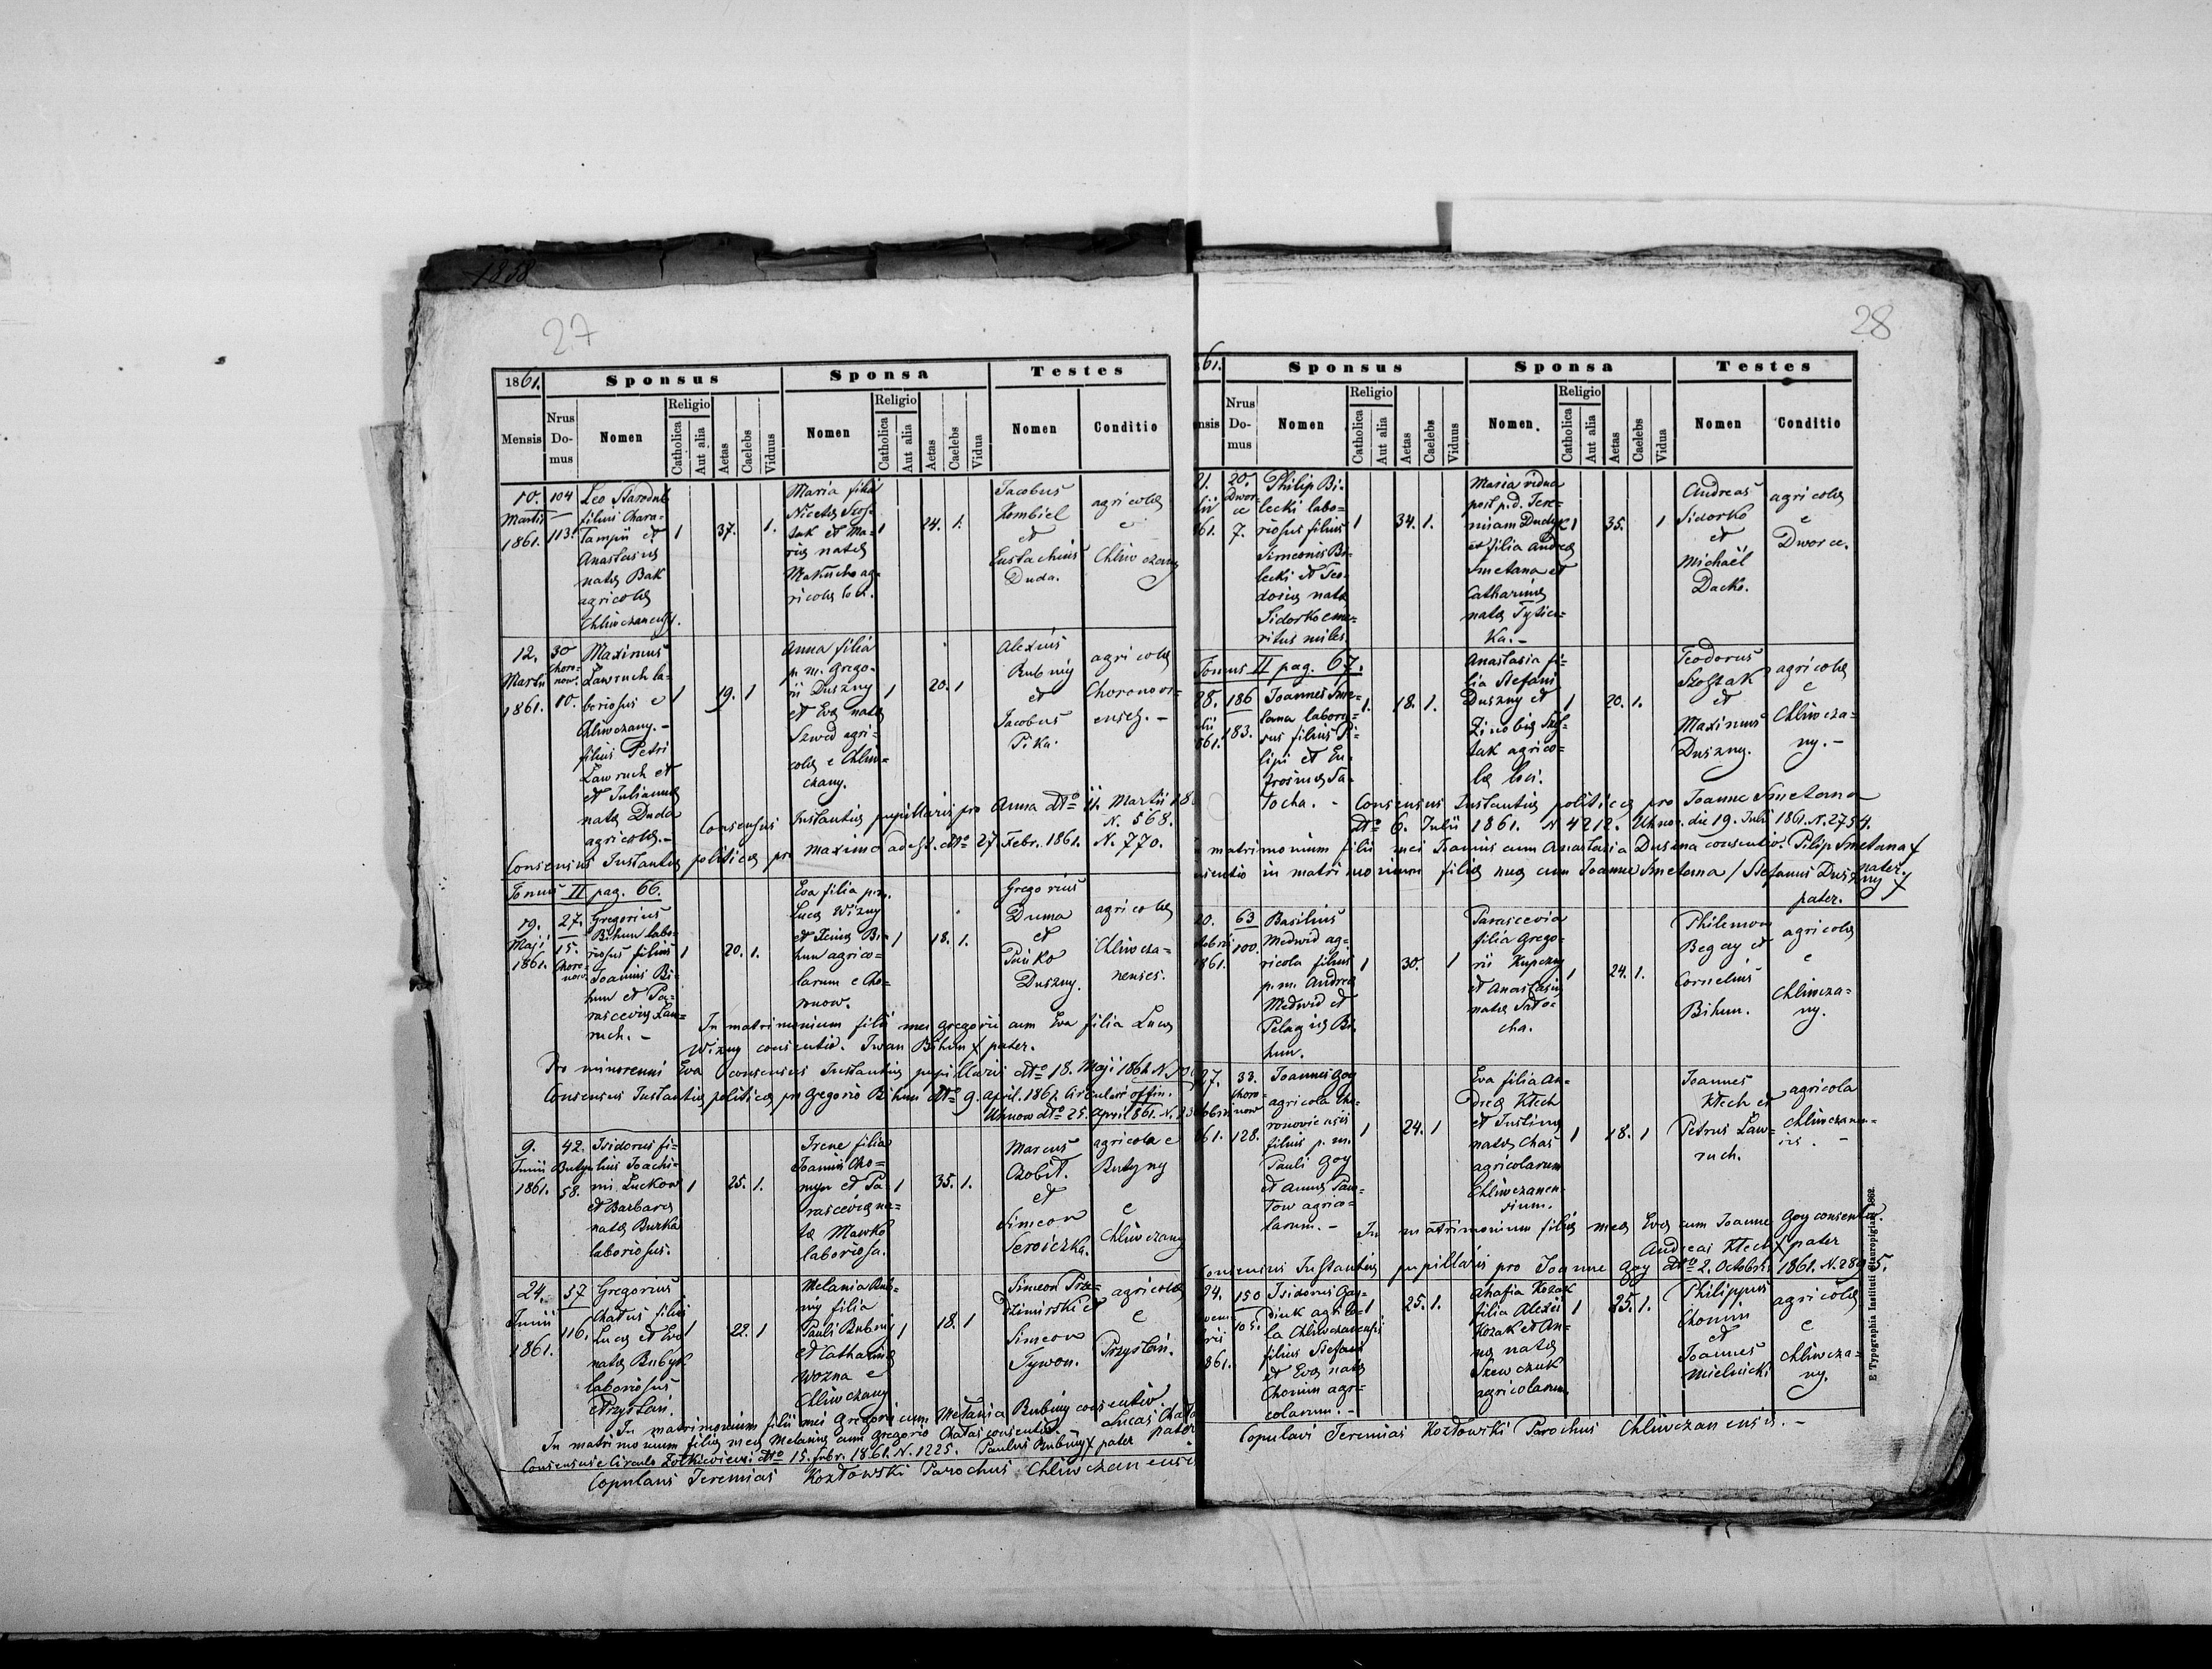 1858
27
1861.
Sponsus
Sponsa
Testes
Mensis
Nrus Domus
Nomen
Religio
Catholica
Aut alia
Aetas
Caelebs
Viduus
Nomen
Religio
Catholica
Aut alia
Aetas
Caelebs
Vidua
Nomen
Conditio
10.
Martii
1861.
104
113.
Leo
filius Chara-
lampii et
Anastasiae
natae Bak
agricolae
Chliwczanensis.
1
37.
1.
Maria filia
Nicetae Szos-
tak et Ma-
riae natae
Makucha ag-
ricolae loci.
1
24.
1.
Jacobus
Kombiel
et
Eustachius
Duda.
agricolae
e
Chliwczany
12.
Martii
1861.
30
Choro-
now.
10.
Maximus
Ławruch la-
boriosus e
Chliwczany.-
filius Petri
Ławruch et
et Iulianna
natae Duda
agricolae.-
1
19.
1
Anna filia
p. m. Grego-
rii Duszny
et Eva natae
Szwed agri-
colae e Chliw-
czany.
1
20.
1
Alexius
Rubniy
et
Jacobus
Pika.
agricolae
Choronovi-
enses.-
Consensus Instantiae pupillaris pro Anna dto 11. Martii 18
N. 568.
Consensus Instantiae politicae pro Maximo adest. dto 27 Febr. 1861. N. 770.
Tomus II pag. 66.
19.
Maji
1861.
27.
15.
Choro-
now.
Gregorius
Bihun labo-
riosus filius
Joannis Bi-
hun et Pa-
rasceviae Law-
ruch.-
1
20.
1.
Eva filia p.m.
Lucae Wizny
et Xeniae Bi-
hun agrico-
larum e Cho-
ronow.
1
18.
1.
Gregorius
Duma
et
Pańko
Duszny.
agricolae
Chliwcza-
nenses.
In matrimonium filii mei Gregorii cum Eva filia Lucae
Wizny consentio. Iwan Bihun x pater.
Pro minorenni Eva consensus Instantiae pupillaris dto 18. Maji 1861. N.
Consensus Instantiae politicae pro Gregorio Bihun dto 9. April. 1861. Circulari offin.
Uhnow dto 25. April 1861. N.
9.
Junii
1861.
42.
Butyn
58.
Isidorus fi-
lius Joachi-
mi Luckow
et Barbara
natae Burka
laboriosus.
1
25.
1.
Irene filia
Joannis Cho-
myn et Pa-
rascevia na-
tae Mawko
laboriosa.
1
35.
1.
Marcus
Czobit.
et
Simeon
Seroiczka.
agricola e
Butyny
e
Chliwczany
24.
Junii
1861.
57
116.
Gregorius
Chatus filius
Lucae et Eva
natae Bubyk
laboriosus
e Przystań.
1
22.
1
Melania Rub-
niy filia
Pauli Rubniy
et Catharina
Wozna e
Chliwczany
1
18.
1
Simeon Prze-
dzimirski et
Simeon
Tywon.
agricolae
e
Przystań.
In matrimonium filii mei Gregorii cum Melania Rubiniy consentio.
Lucas Chata
pater
In matrimonium filiae meae Melaniae cum Gregorio Chatas consentio.
Paulus Rubiniy x pater
Consensus e Circulo Żółkiewiensi dto 15. Febr. 1861. N. 1225.
Copulavi Jeremias Kozłowski Parochus Chliwczanensis
28
61.
Sponsus
Sponsa
Testes
nsis
Nrus Domus
Nomen
Religio
Catholica
Aut alia
Aetas
Caelebs
Viduus
Nomen.
Religio
Catholica
Aut alia
Aetas
Caelebs
Vidua
Nomen
Conditio
21.
lii
861.
20.
Dwor-
ce
7.
Philip Bi-
lecki labo-
riosus filius
Simeonis Bi-
lecki et Teo-
dosiae natae
Sidorko eme-
ritus miles.
1
34.
1.
Maria vidua
post p.d. Jere-
miam Dudyk
et filia Andreae
Smetana et
Catharinae
natae Tytiu-
Ka.-
1
35.
1
Andreas
Sidorko
et
Michaël
Dacko.
agricolae
e
Dworce.
Tomus II pag. 67.
28.
lii
861.
186
183.
Joannes Sme-
tana laborio-
sus filius Pi-
lipi et Eu-
frosinae Sa-
tocha.-
1.
18.
1.
Anastasia fi-
lia Stefani
Duszny et
Zinobiae Szos-
tak agrico-
lae loci.
1
20.
1.
Teodorus
Szostak
et
Maximus
Duszny.
agricolae
e
Chliwcza-
ny.-
Consensus Instantiae politicae pro Joanne Smetana
dto 6. Julii 1861. N 4212. Uhnow. die 19. Julii 1861. N. 2754.
matrimonium filii mei Joannis cum Anastasia Duszna consentio. Pilip Smetana x
pater.
nsentio in matrimonium filiae meae cum Joanne Smetana / Stefanus Duszny x
pater.
20.
tobris
1861.
63
100.
Basilius
Medwid ag-
ricola filius
p. m. Andrea
Medwid et
Pelagiae Bi-
hun.
1
30.
1
Parascevia
filia Grego-
rii Kupczny
et Anastasiae
natae Sato-
cha.
1
24.
1.
Philemon
Begay et
Cornelius
Bihun.
agricolae
e
Chliwcza-
ny.
27.
tobris
861.
33.
Choro-
now
128.
Joannes Goy
agricola Cho-
ronoviensis
filius p. m.
Pauli Goy
et Annae Paw-
łow agrico-
larum.-
1
24.
1
Eva filia An-
dreae Ktech
et Justinae
natae Chas
agricolarum
Chliwczanen-
sium.
1
18.
1
Joannes
Ktech et
Petrus Law-
ruch.
agricola
Chliwczanen-
sis.-
In matrimonium filiae meae Evae cum Joanne Goy consentio.
Andreas Ktech x pater
Consensus Instantiae pupillaris pro Joanne Goy dto 2. Octobris 1861. N. 2895.
24.
vem
bris
861.
150
105.
Isidorus Gay-
diuk agrico-
la Chliwczanensis
filius Stefani
et Eva natae
Chomin agri-
colarum.-
1
25.
1.
Ahafia Kozak
filia Alexii
Kozak et An-
na natae
Szewczuk
agricolarum.
1
25.
1.
Philippus
Chomin
et
Joannes
Mielnicki
agricolae
e
Chliwcza-
ny.
Copulavi Jeremias Kozłowski Parochus Chliwczanensis.-
E Typographia Instituti Stauropigiani 1862.